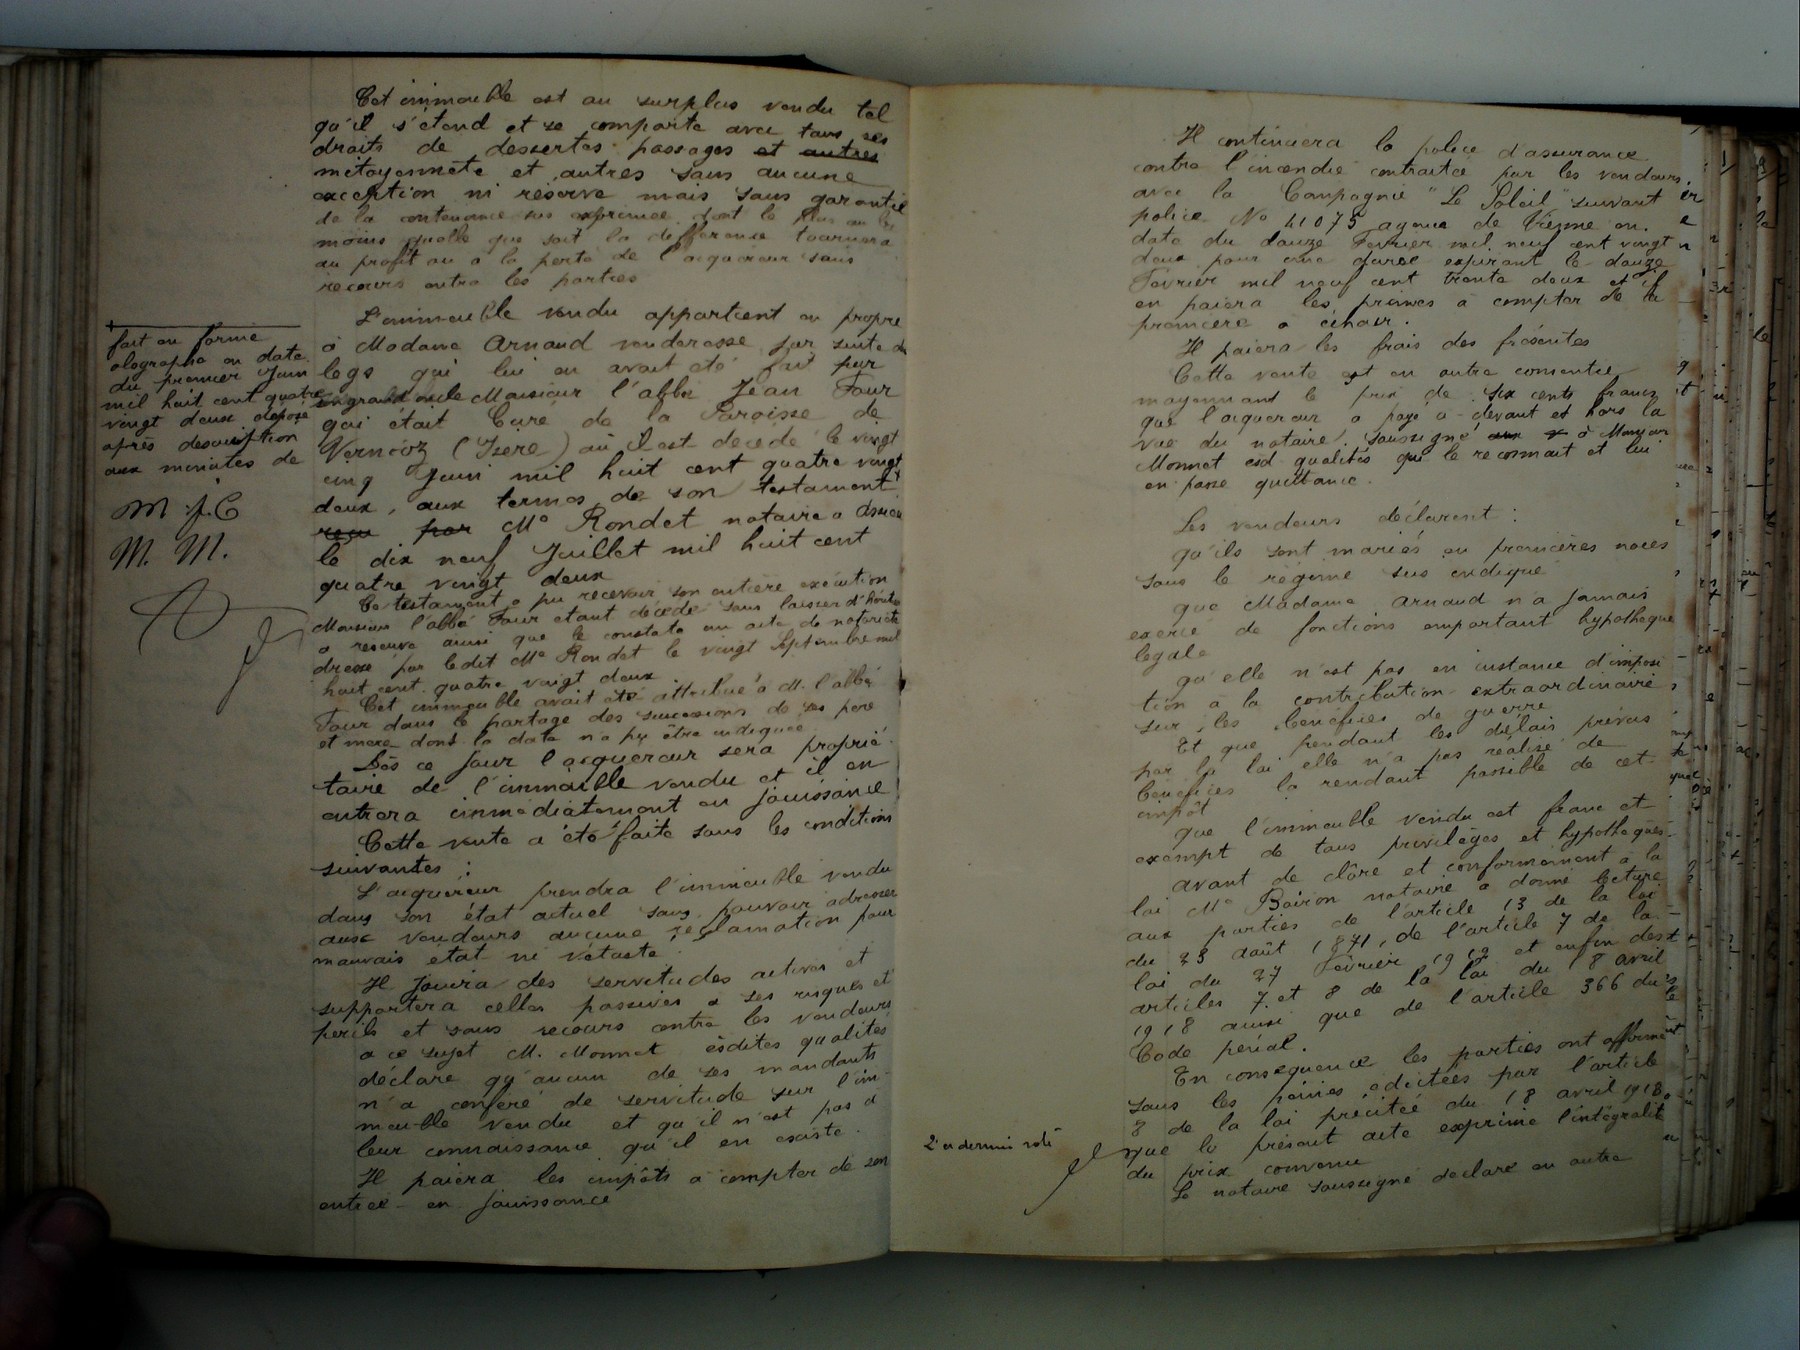 Cet immeuble est au surplus vendu tel
qu'il s'étend et se comporte avec tous ses
droits de dessertes passages et autres
mitoyenneté et autres sans aucune
exception ni réserve mais sans garantie
de la contenance sus exprimée dont le plus ou le
moins quelle que soit la différence tournera
au profit ou à la perte de l'acquereur sans
recours entre les parties
L'immeuble vendu appartient en propre
à Madame Arnaud venderesse par suite du
legs qui lui en avait été fait par
son grand oncle Monsieur l'abbé Jean Four
qui était Curé de la Paroisse de
Vernioz (Isère) où il est décédé le vingt
cinq Juin mil huit cent quatre vingt
deux, aux termes de son testament
reçu par Me Rondet notaire à
le dix neuf Juillet mil huit cent
quatre vingt deux
Ce testament a pu recevoir son entière exécution
Monsieur l'abbé Four étant décédé sans laisser d'héritier
a reserve ainsi que le constate un acte de notoriété
dressé par ledit Me Rondet le vingt Septembre mil
huit cent quatre vingt deux
Cet immeuble avait été attribué à M. l'abbé
Four dans le partage des successions de ses père
et mère dont la date n'a pu être indiquée
Dès ce jour l'acquereur sera proprié-
taire de l'immeuble vendu et il en
entrera immédiatement en jouissance
Cette vente a été faite sous les conditions
suivantes :
L'acquéreur prendra l'immeuble vendu
dans son état actuel sans pouvoir adresser
aux vendeurs aucune réclamation pour
mauvais état ni vétusté
Il jouira des servitudes actives et
supportera celles passives à ses risques et
perils et sans recours contre les vendeurs
a ce sujet M. Monnet ésdites qualités
déclare qu'aucun de ses mandants
n'a conféré de servitude sur l'im-
meuble vendu et qu'il n'est pas à
leur connaissance qu'il en existe.
Il paiera les impôts à compter de son
entrée en jouissance
fait en forme
olographe en date
du premier Juin
mil huit cent quatre
vingt deux déposé
après description
aux minutes de
M. J. C
M. M.
Il continuera la police d'assurance
contre l'incendie contractée par les vendeurs
avec la Compagnie "Le Soleil" suivant
police No 41075 agence de Vienne en
date du douze Fevrier mil neuf cent vingt
deux pour une durée expirant le douze
Fevrier mil neuf cent trente deux et il
en paiera les primes à compter de la
première à échoir.
Il paiera les frais des présentes
Cette vente est en outre consentie
moyennant le prix de six cents francs
que l'acquereur a payé ci-devant et hors la
vue du notaire soussigné à Monsieur
Monnet esd. qualités qui le reconnait et lui
en passe quittance.
Les vendeurs déclarent :
qu'ils sont mariés en premières noces
sous le régime sus indiqué
que Madame Arnaud n'a jamais
exercé de fonctions emportant hypothèque
légale
qu'elle n'est pas en instance d'imposi
tion à la contribution extraordinaire
sur les bénéfices de guerre
Et que pendant les délais prévus
par la loi elle n'a pas réalisé de
bénéfices la rendant passible de cet
impôt
que l'immeuble vendu est franc et
exempt de tous privilèges et hypothèques
avant de clôre et conformément à la
loi Me Boiron notaire a donné lecture
aux parties de l'article 13 de la loi
du 23 août 1871, de l'article 7 de la
loi du 27 Février 1912 et enfin des
articles 7 et 8 de la loi du 18 avril
1918 ainsi que de l'article 366 du
Code pénal.
En conséquence les parties ont affirmé
sous les peines édictées par l'article
8 de la loi précitée du 18 avril 1918
que le présent acte exprime l'intégralité
du prix convenu
Le notaire soussigné déclare en outre